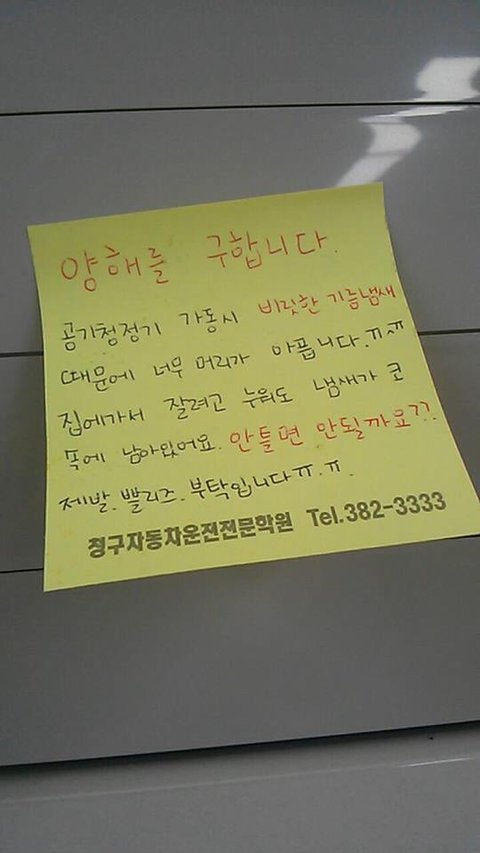 양해를 구합니다.
공기청정기 가동시 비릿한 기름냄새
때문에 너무 머리가 아픕니다.ㅠ.ㅠ
집에가서 잘려고 누워도 냄새가 코
속에 남아있어요. 안틀면 안될까요??.
제발. 쁠리즈. 부탁입니다ㅠ.ㅠ.
청구자동차운전전문학원 Tel.382-3333